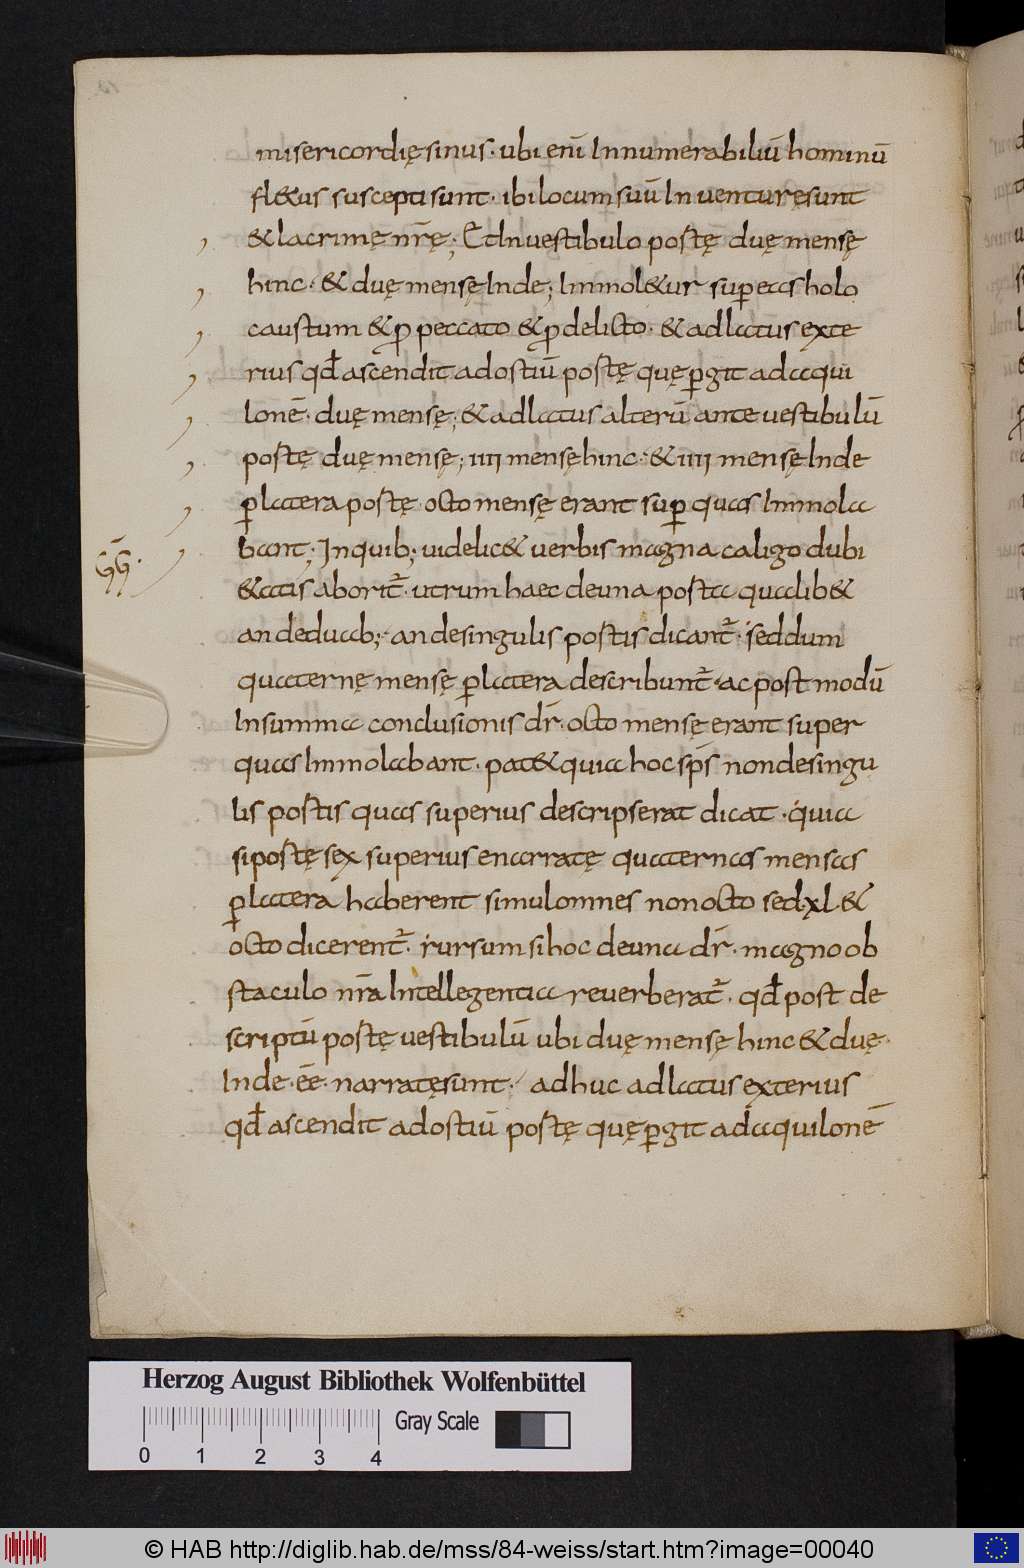 misericordię sinus· ubi enī Innumerabiliū hominū
fl&us suscepti sunt· ibi locum suū Inventuręsunt
& lacrimę nr̄ę; Et In vestibulo postę duę mensę
hinc· & duę mensę Inde; Immol&ur sup eas holo
caustum & p peccato & p delicto· & ad latus exte
rius qđ ascendit ad ostiū postę quę pgit ad aqui
lonē· duę mensę; & ad latus alterū ante vestibulū
postę duę mensę; IIII mensę hinc· & IIII mensę Inde
p latera postę· octo mensę erant sup quas Immola
bant; In quib; videlic& verbis magna caligo dubi
&atis aborit̄· utrum haec de una posta qualib&
an de duab; an de singulis postis dicant̄· sed dum
quaternę mensę p latera describunt̄· ac post modū
In summa conclusionis dr̄· octo mensę erant super
quas Immolabant· pat& quia hoc sps̄ non de singu
lis postis quas superius descripserat dicat· quia
si postę sex superius enarratę quaternas mensas
p latera haberent simul omnes non octo sed·xl·&
octo dicerent̄· rursum si hoc de una dr̄· magno ob
staculo nr̄a Intellegentia reverberat̄· qđ post de
scriptū postę vestibulū ubi duę mensę hinc & duę
Inde· ēē· narratę sunt· adhuc ad latus exterius
qđ ascendit ad ostiū postę quę pgit ad aquilonē
Herzog August Bibliothek Wolfenbüttel
Gray Scale
0 1 2 3 4
© HAB http://diglib.hab.de/mss/84-weiss/start.htm?image=00040